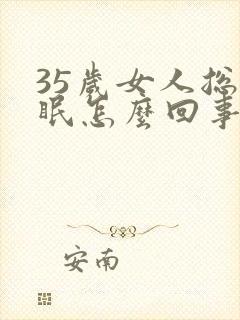 35歲女人總
眠怎麼回事
安南